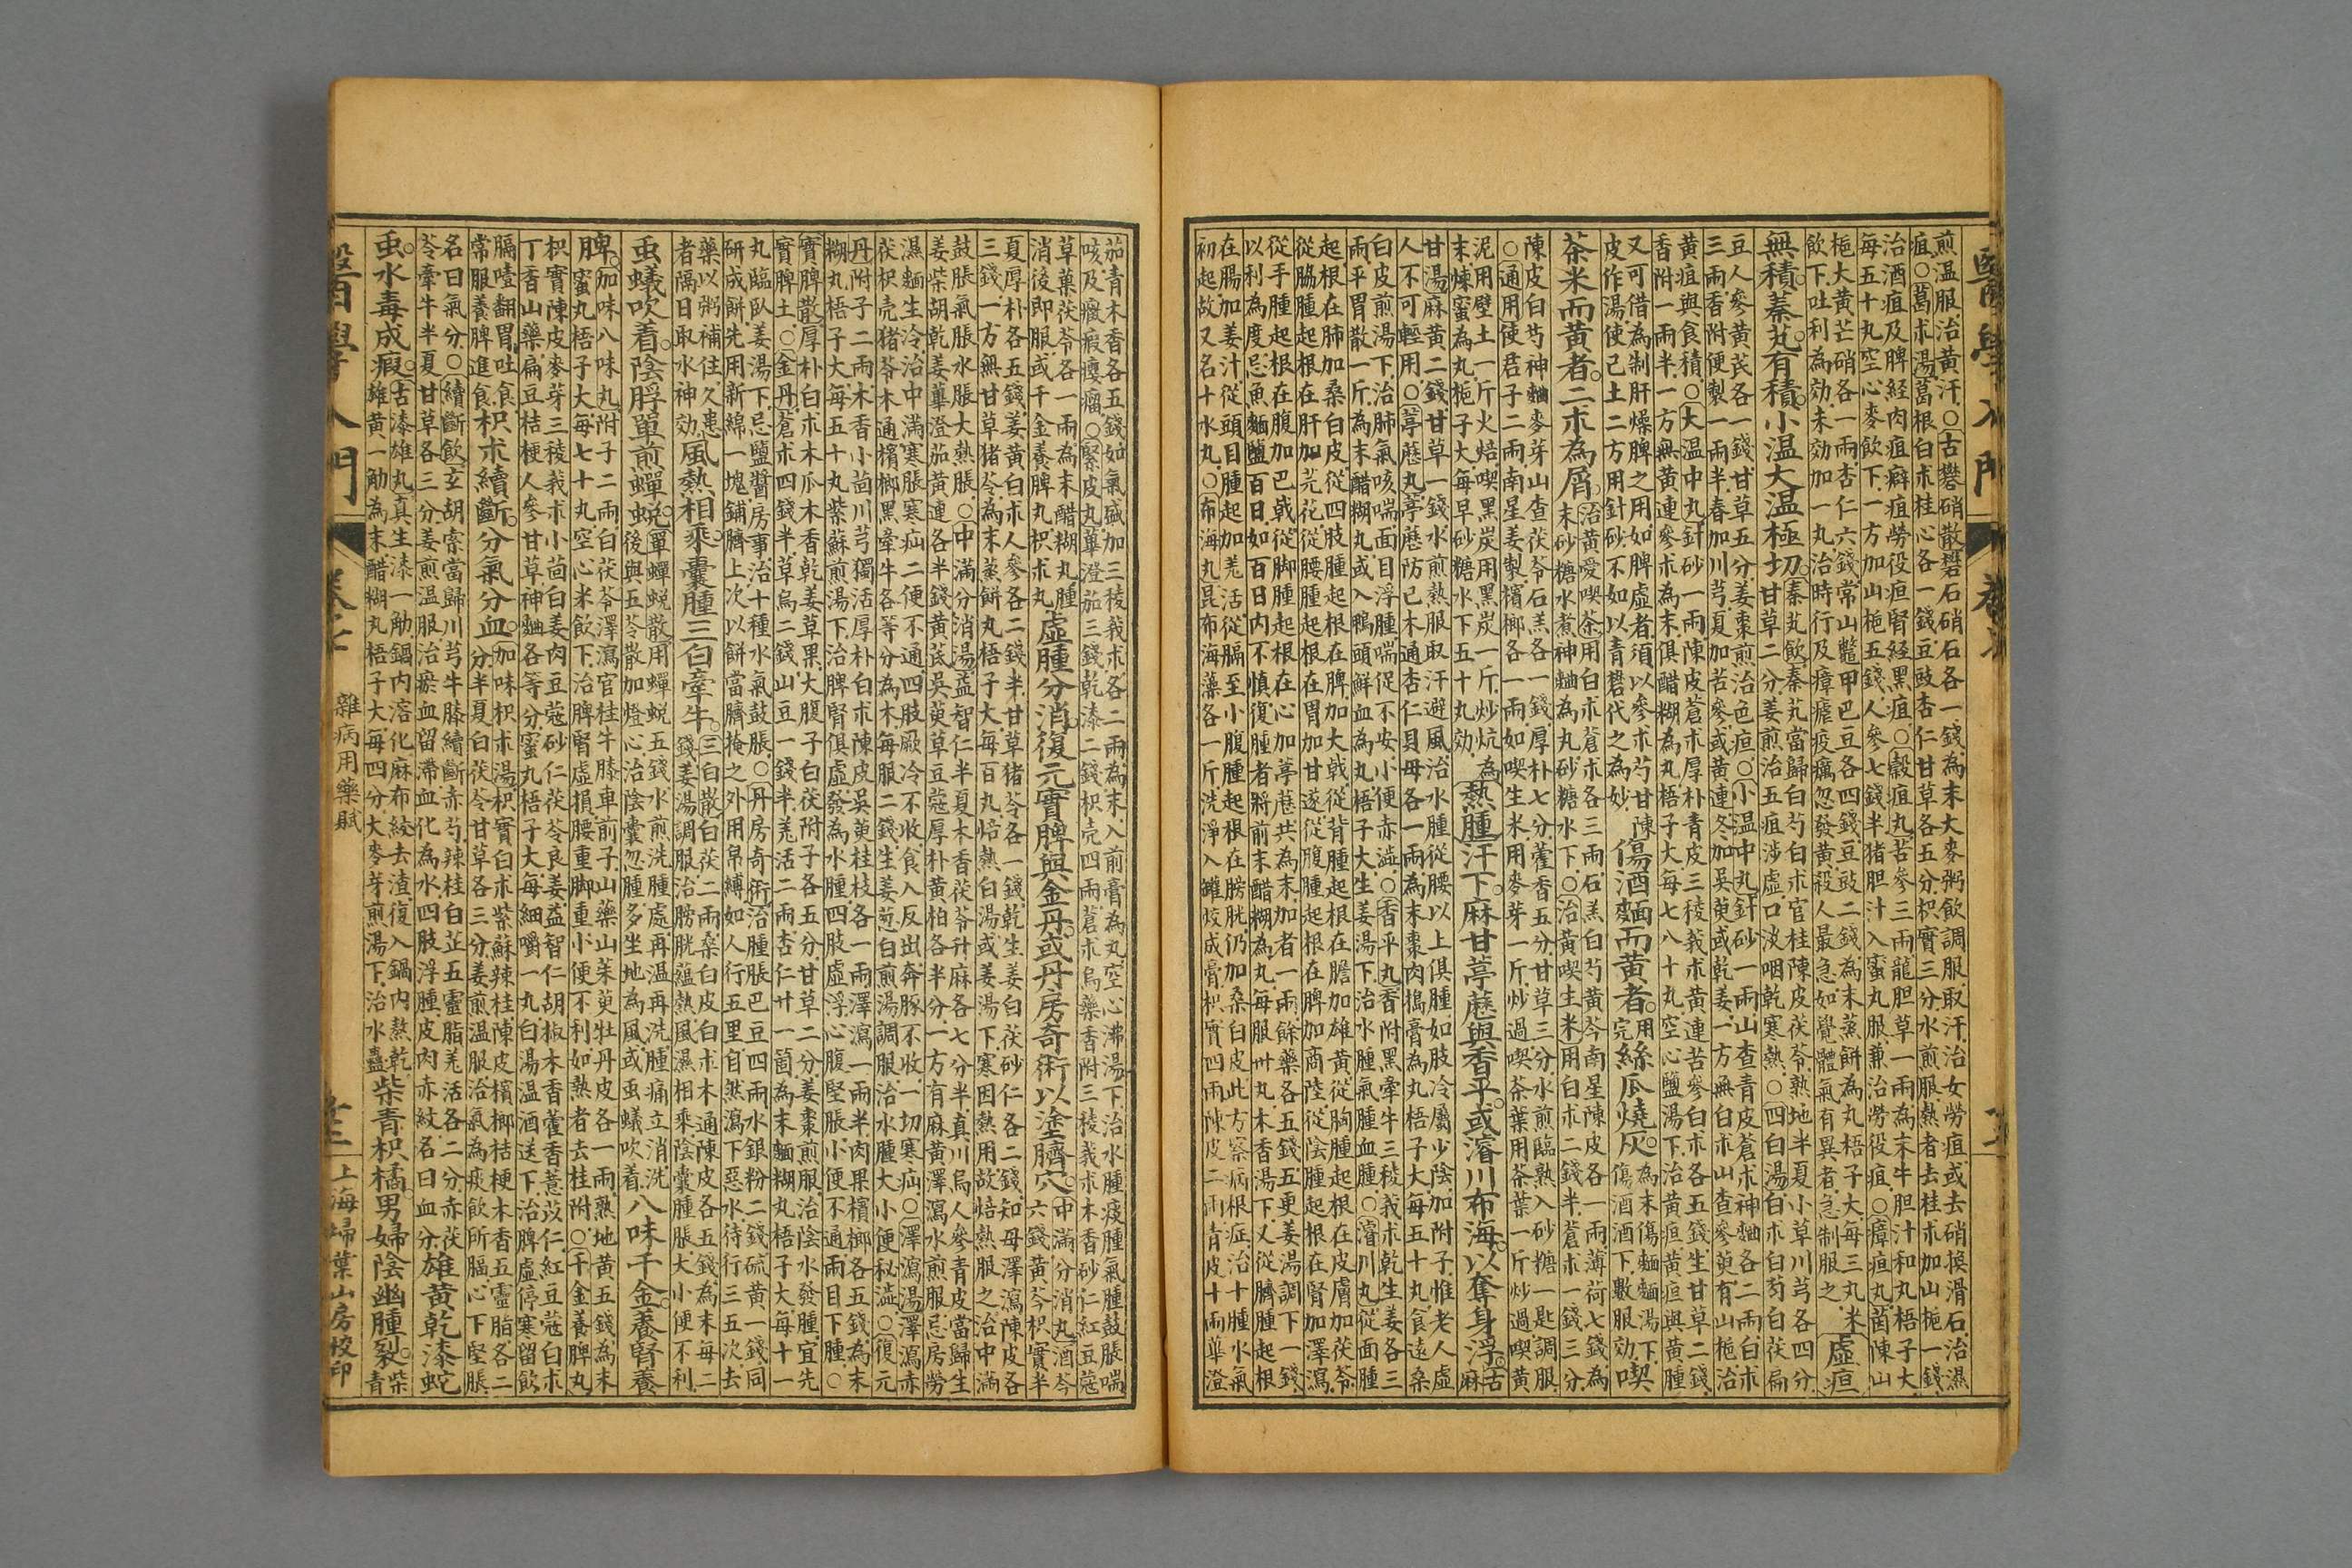 醫學入門
煎溫服治黃汗○古礬硝散礬石硝石各一錢為末大麥粥飲調服取汗治女勞疸或去硝換滑石治濕
疸○葛朮湯葛根白朮桂心各一錢豆豉杏仁甘草各五分枳實三分水煎服熱者去桂朮加山梔一錢
治酒疸及脾經肉疸癖疸勞役疸腎經黑疸○穀疸丸苦參三兩龍胆草一兩為末牛胆汁和丸梧子大
每五十丸空心麥飲下一方加山梔五錢人參七錢半猪胆汁入蜜丸服兼治勞役疸○瘴疸丸茵陳山
梔大黃芒硝各一兩杏仁六錢常山鱉甲巴豆各四錢豆豉二錢為末蒸餅為丸梧子大每三丸米
飲下吐利為効未効加一丸治時行及瘴瘧疫癘忽發黃殺人最急如覺體氣有異者急制服之
虛疸
無積秦艽有積小温大温極切
秦艽飲秦艽當歸白芍白朮官桂陳皮茯苓熟地半夏小草川芎各四分
甘草二分姜煎治五疸涉虛口淡咽乾寒熱○四白湯白朮白芍白茯扁
豆人參黃芪各一錢甘草五分姜棗煎治色疸○小温中丸針砂一兩山查青皮蒼朮神麯各二兩白朮
三兩香附便製一兩半春加川芎夏加苦參或黃連冬加吳萸或乾姜一方無白朮山查參萸有山梔治
黃疸與食積○大温中丸針砂一兩陳皮蒼朮厚朴青皮三稜莪朮黃連苦參白朮各五錢生甘草二錢
香附一兩半一方無黃連參朮為末俱醋糊為丸梧子大每七八十丸空心鹽湯下治黃疸黃疸與黃腫
又可借為制肝燥脾之用如脾虛者須以參朮芍甘陳
皮作湯使已土二方用針砂不如以青礬代之為妙
傷酒麵而黃者
用完
絲瓜燒灰
為末傷麵麵湯下
傷酒酒下數服効
喫
茶米而黃者二朮為屑
治黃愛喫茶用白朮蒼朮各三兩石羔白芍黃芩南星陳皮各一兩薄荷七錢為
末砂糖水煮神麯為丸砂糖水下○治黃喫生米用白朮二錢半蒼朮一錢三分
陳皮白芍神麯麥芽山查茯苓石羔各一錢厚朴七分藿香五分甘草三分水煎臨熟入砂糖一匙調服
○通用使君子二兩南星姜製檳榔各一兩如喫生米用麥芽一斤炒過喫茶葉用茶葉一斤炒過喫黃
泥用壁土一斤火焙喫黑炭用黑炭一斤炒炕為
末煉蜜為丸梔子大每早砂糖水下五十丸効
熱腫汗下麻甘葶藶與香平或濬川布海以奪身浮
古
麻
甘湯麻黃二錢甘草一錢水煎熱服取汗避風治水腫從腰以上俱腫如肢冷屬少陰加附子惟老人虛
人不可輕用○葶藶丸葶藶防已木通杏仁貝母各一兩為末棗肉搗膏為丸梧子大每五十丸食遠桑
白皮煎湯下治肺氣咳喘面目浮腫喘促不安小便赤澁○香平丸香附黑牽牛三稜莪朮乾生姜各三
兩平胃散一斤為末醋糊丸或入鴨頭鮮血為丸梧子大生姜湯下治水腫氣腫血腫○濬川丸從面腫
起根在肺加桑白皮從四肢腫起根在脾加大戟從背腫起根在膽加雄黃從胸腫起根在皮膚加茯苓
從脇腫起根在肝加芫花從腰腫起根在胃加甘遂從腹腫起根在脾加商陸從陰腫起根在腎加澤瀉
從手腫起根在腹加巴戟從脚腫起根在心加葶藶共為末加者一兩餘藥各五錢五更姜湯調下一錢
以利為度忌魚麵鹽百日如百日内不慎復腫者將前末醋糊為丸每服卅丸木香湯下又從臍腫起根
在腸加姜汁從頭目腫起加羌活從膈至小腹腫起根在膀胱仍加桑白皮此方察病根症治十腫水氣
初起故又名十水丸○布海丸昆布海藻各一斤洗淨入罐烄成膏枳實四兩陳皮二兩青皮十兩蓽澄
茄青木香各五錢如氣盛加三稜莪朮各二兩為末入前膏為丸空心沸湯下治水腫痰腫氣腫鼓脹喘
咳及癥瘕癭瘤○緊皮丸蓽澄茄三錢乾漆二錢枳壳四兩蒼朮烏藥香附三稜莪朮木香砂仁紅豆蔻
草菓茯苓各一兩為末醋糊丸腫
消後即服或千金養脾丸枳朮丸
虛腫分消復元實脾與金丹或丹房奇術以塗臍穴
中滿分消丸酒芩
六錢黃芩枳實半
夏厚朴各五錢姜黃白朮人參各二錢半甘草猪苓各一錢乾生姜白茯砂仁各二錢知母澤瀉陳皮各
三錢一方無甘草猪苓為末蒸餅丸梧子大每百丸焙熱白湯或姜湯下寒因熱用故焙熱服之治中滿
鼓脹氣脹水脹大熱脹○中滿分消湯益智仁半夏木香茯苓升麻各七分半真川烏人參青皮當歸生
姜柴胡乾姜蓽澄茄黃連各半錢黃芪吳萸草豆蔻厚朴黃柏各半分一方有麻黃澤瀉水煎服忌房勞
濕麵生冷治中滿寒脹寒疝二便不通四肢厥冷不收食入反出奔豚不收一切寒疝○澤瀉湯澤瀉赤
茯枳壳猪苓木通檳榔黑牽牛各等分為末每服二錢生姜葱白煎湯調服治水腫大小便秘澁○復元
丹附子二兩木香小茴川芎獨活厚朴白朮陳皮吳萸桂枝各一兩澤瀉一兩半肉果檳榔各五錢為末
糊丸梧子大每五十丸紫蘇煎湯下治脾腎俱虛發為水腫四肢虛浮心腹堅脹小便不通兩目下腫○
實脾散厚朴白朮木瓜木香乾姜草果大腹子白茯附子各五分甘草二分姜棗煎服治陰水發腫宜先
實脾土○金丹蒼朮四錢半草烏二錢山豆一錢半羌活二兩杏仁廿一箇為末麵糊丸梧子大每十一
丸臨臥姜湯下忌鹽醬房事治十種水氣鼓脹○丹房奇術治腫脹巴豆四兩水銀粉二錢硫黃一錢同
研成餅先用新綿一塊鋪臍上次以餅當臍掩之外用帛縛如人行五里自然瀉下惡水待行三五次去
藥以粥補住久患
者隔日取水神効
風熱相乘囊腫三白牽牛
三白散白茯二兩桑白皮白朮木通陳皮各五錢為末每二
錢姜湯調服治膀胱蘊熱風濕相乘陰囊腫脹大小便不利
虫蟻吹着陰脬單煎蟬蛻
單蟬蛻散用蟬蛻五錢水煎洗腫處再温再洗腫痛立消洗
後與五苓散加燈心治陰囊忽腫多坐地為風或虫蟻吹着
八味千金養腎養
脾
加味八味丸附子二兩白茯苓澤瀉官桂牛膝車前子山藥山茱萸牡丹皮各一兩熟地黃五錢為末
蜜丸梧子大每七十丸空心米飲下治脾腎虛損腰重脚重小便不利如熱者去桂附○千金養脾丸
枳實陳皮麥芽三稜莪朮小茴白姜肉豆蔻砂仁茯苓良姜益智仁胡椒木香藿香薏苡仁紅豆蔻白朮
丁香山藥扁豆桔梗人參甘草神麯各等分蜜丸梧子大每細嚼一丸白湯温酒送下治脾虛停寒留飲
膈噎翻胃吐食
常服養脾進食
枳朮續斷分氣分血
加味枳朮湯枳實白朮紫蘇辣桂陳皮檳榔桔梗木香五靈脂各二
分半夏白茯苓甘草各三分姜煎温服治氣為痰飲所膈心下堅脹
名曰氣分○續斷飲玄胡索當歸川芎牛膝續斷赤芍辣桂白芷五靈脂羌活各二分赤茯
苓牽牛半夏甘草各三分姜煎温服治瘀血留滯血化為水四肢浮腫皮肉赤紋名曰血分
雄黃乾漆蛇
虫水毒成瘕
古漆雄丸真生漆一觔鍋内溶化麻布絞去渣復入鍋内熬乾
雄黃一觔為末醋糊丸梧子大每四分大麥芽煎湯下治水蠱
柴青枳橘男婦陰幽腫裂
柴
青
醫學入門
卷七
雜病用藥賦
上海埽葉山房校印